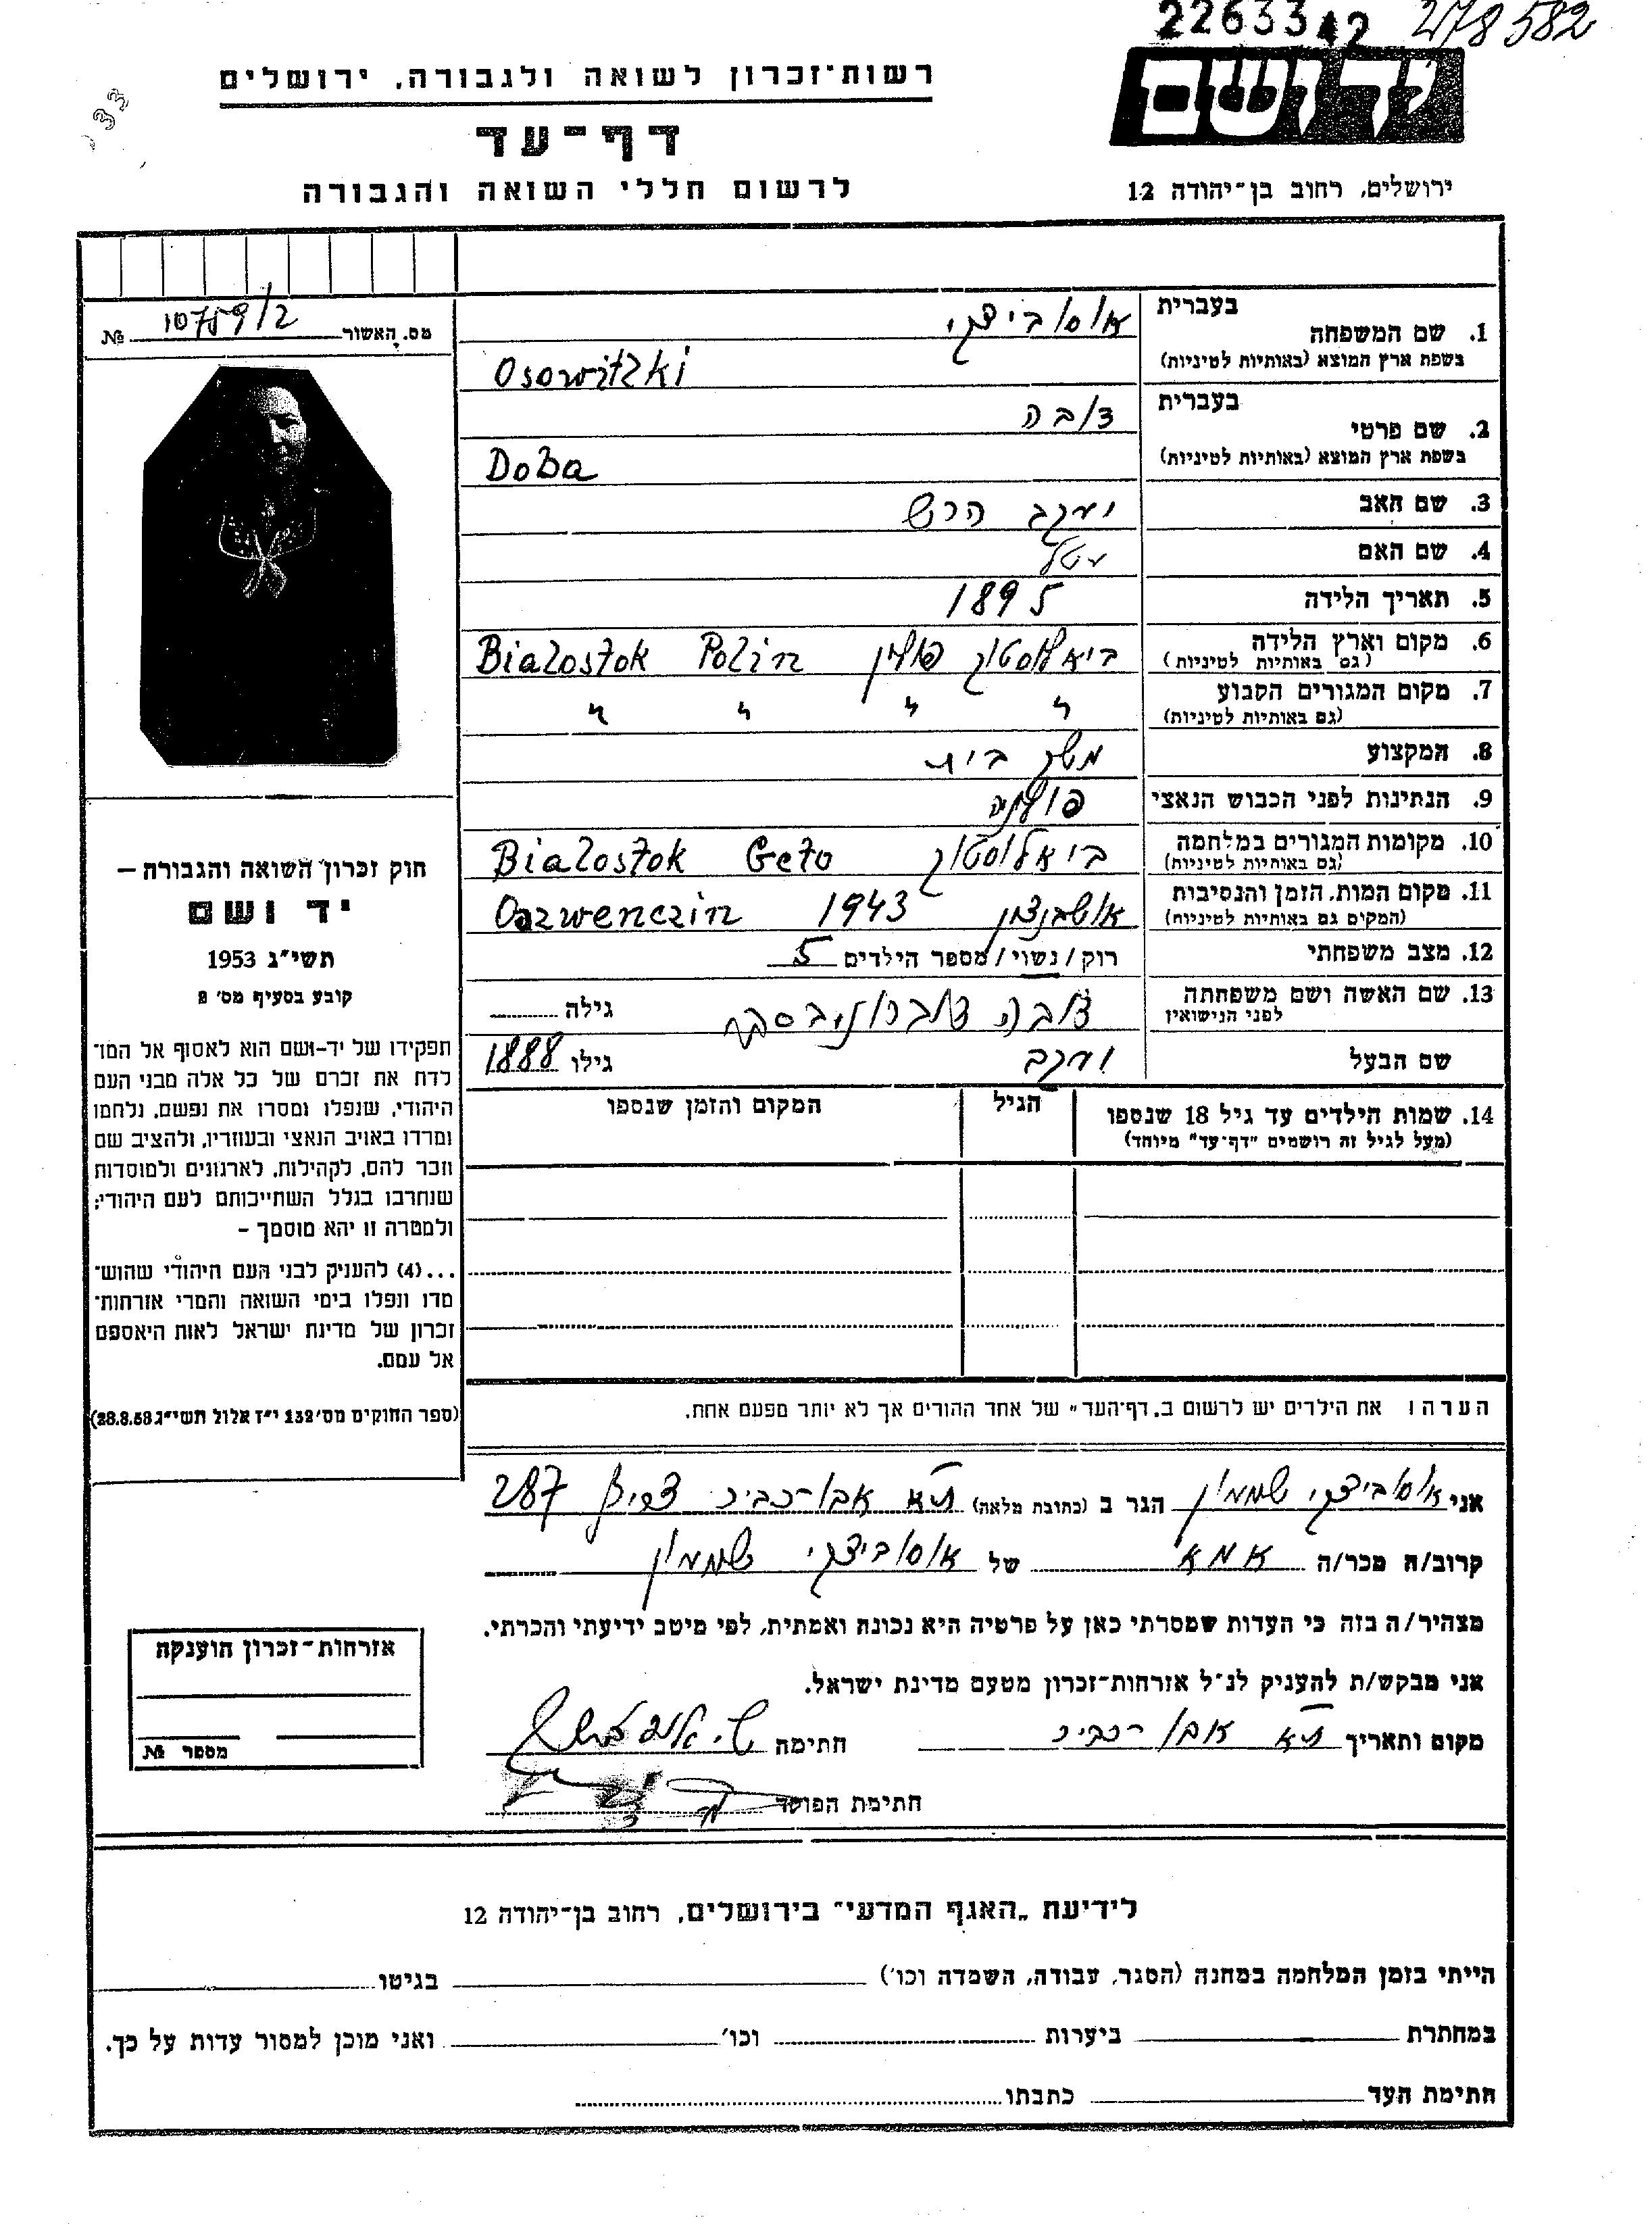 22633 42 278582
יד ושם
רשות־זכרון לשואה ולגבורה, ירושלים
דף־עד
לרשום חללי השואה והגבורה
ירושלים, רחוב בן־יהודה 12
מס. האשור 10759/2 №
1. שם המשפחה
בעברית אוסוביצקי
בשפת ארץ המוצא (באותיות לטיניות) Osowitzki
2. שם פרטי
בעברית דובה
בשפת ארץ המוצא (באותיות לטיניות) Doba
3. שם האב יעקב הרש
4. שם האם
5. תאריך הלידה 1895
6. מקום וארץ הלידה ביאלוסטוק פולין Bialostok Polin
(גם באותיות לטיניות)
7. מקום המגורים הקבוע " " " "
(גם באותיות לטיניות)
8. המקצוע משק בית
9. הנתינות לפני הכבוש הנאצי פולניה
10. מקומות המגורים במלחמה ביאלוסטוק Bialostok Geto
(גם באותיות לטיניות)
11. מקום המות, הזמן והנסיבות 1943 Oszwenczin
(המקום גם באותיות לטיניות)
12. מצב משפחתי רוק / נשוי / מספר הילדים 5
13. שם האשה ושם משפחתה דובה גילה
לפני הנישואין
שם הבעל יעקב גילו 1888
14. שמות הילדים עד גיל 18 שנספו הגיל המקום והזמן שנספו
(מעל לגיל זה רושמים "דף־עד" מיוחד)
הערה: את הילדים יש לרשום ב„דף־העד" של אחד ההורים אך לא יותר מפעם אחת.
חוק זכרון השואה והגבורה —
יד ושם
תשי"ג 1953
קובע בסעיף מס' 2
תפקידו של יד־ושם הוא לאסוף אל המו־
לדת את זכרם של כל אלה מבני העם
היהודי, שנפלו ומסרו את נפשם, נלחמו
ומרדו באויב הנאצי ובעוזריו, ולהציב שם
וזכר להם, לקהילות, לארגונים ולמוסדות
שנחרבו בגלל השתייכותם לעם היהודי;
ולמטרה זו יהא מוסמך —
...(4) להעניק לבני העם היהודי שהוש־
מדו ונפלו בימי השואה והמרי אזרחות־
זכרון של מדינת ישראל לאות היאספם
אל עמם.
(ספר החוקים מס' 132 י"ז אלול תשי"ג 28.8.53)
אני אוסוביצקי שמעון הגר ב (כתובת מלאה) ת"א אבו־כביר צריף 287
קרוב/ה מכר/ה אמא של אוסוביצקי שמעון
מצהיר/ה בזה כי העדות שמסרתי כאן על פרטיה היא נכונה ואמתית, לפי מיטב ידיעתי והכרתי.
אני מבקש/ת להעניק לנ"ל אזרחות־זכרון מטעם מדינת ישראל.
מקום ותאריך ת"א אבו כביר חתימה
חתימת הפוקד
אזרחות־זכרון הוענקה
מספר №
לידיעת „האגף המדעי" בירושלים, רחוב בן־יהודה 12
הייתי בזמן המלחמה במחנה (הסגר, עבודה, השמדה וכו') בגיטו
במחתרת ביערות וכו' ואני מוכן למסור עדות על כך.
חתימת העד כתבתו